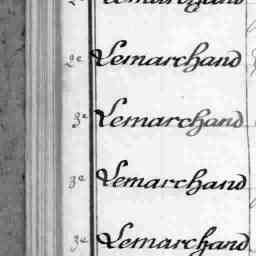 Lemarchand
2e Lemarchand
3e Lemarchand
3e Lemarchand
3e Lemarchand